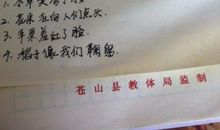 2. 花朵在向人们点头
3. 苹果羞红了脸
4. 稻子像我们鞠躬
苍山县教体局监制